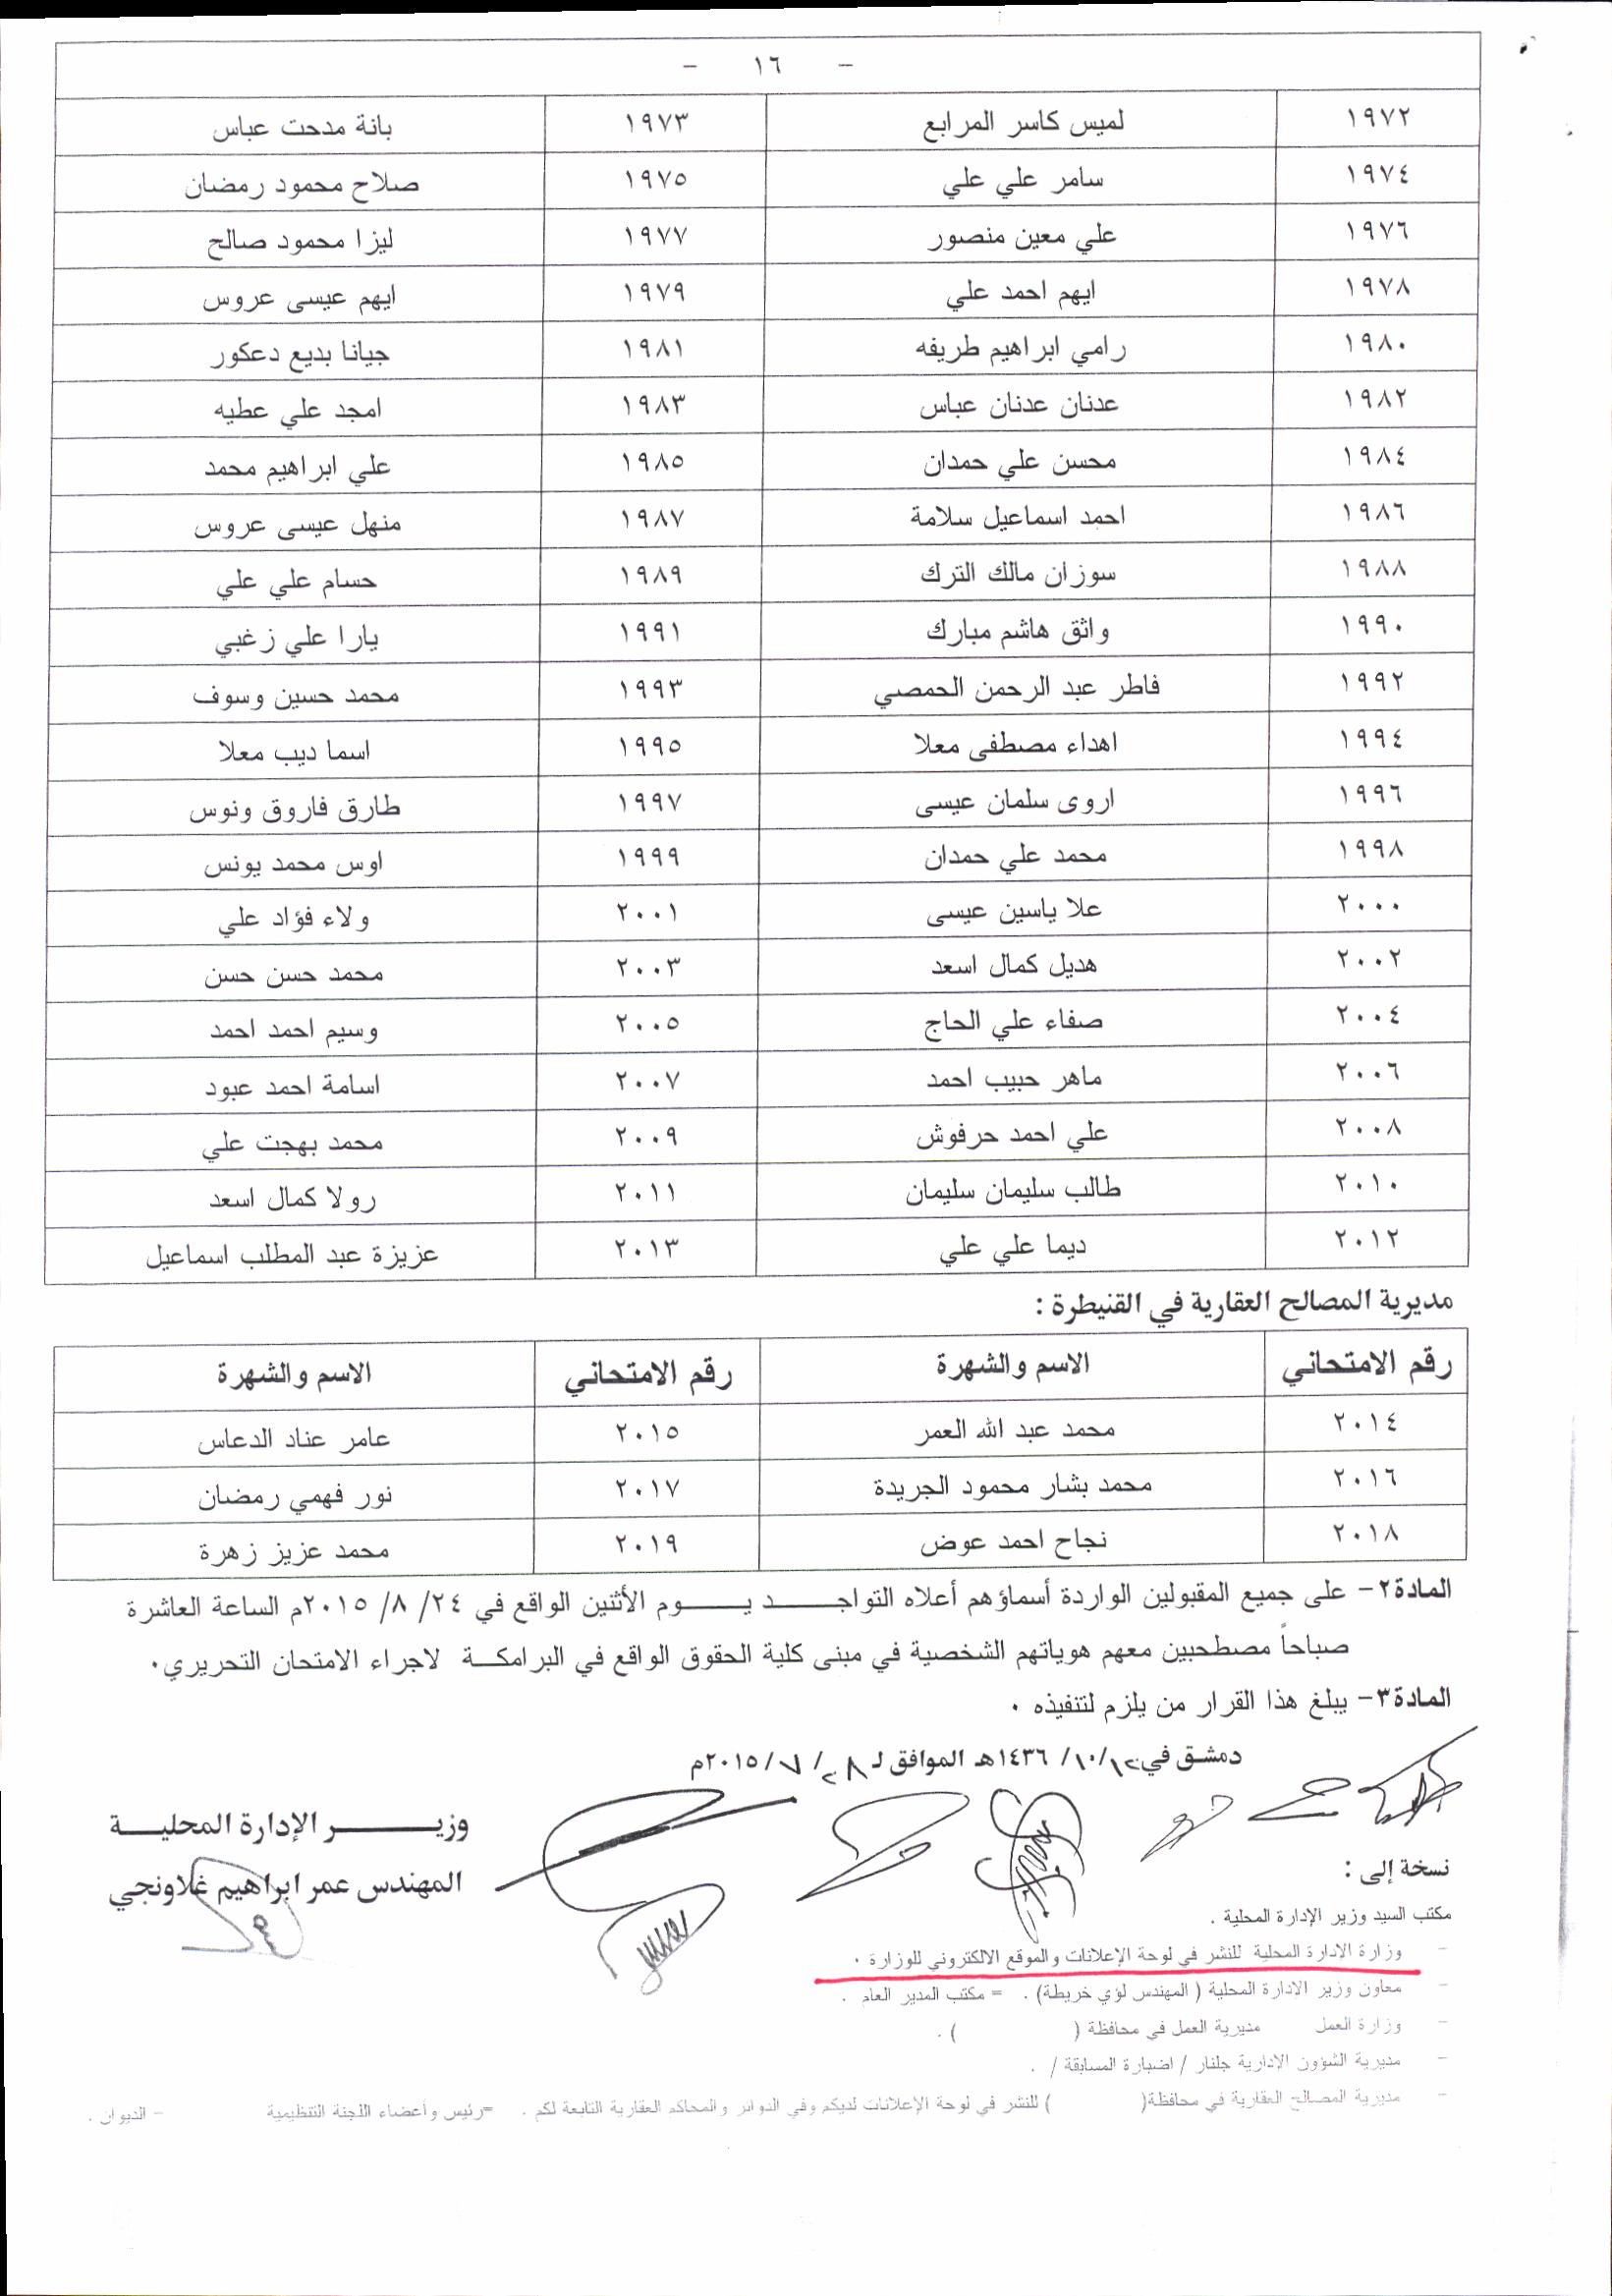 - ١٦ -
١٩٧٢ لميس كاسر المرابع ١٩٧٣ بانة مدحت عباس
١٩٧٤ سامر علي علي ١٩٧٥ صلاح محمود رمضان
١٩٧٦ علي معين منصور ١٩٧٧ ليزا محمود صالح
١٩٧٨ ايهم احمد علي ١٩٧٩ ايهم عيسى عروس
١٩٨٠ رامي ابراهيم طريفه ١٩٨١ جيانا بديع دعكور
١٩٨٢ عدنان عدنان عباس ١٩٨٣ امجد علي عطيه
١٩٨٤ محسن علي حمدان ١٩٨٥ علي ابراهيم محمد
١٩٨٦ احمد اسماعيل سلامة ١٩٨٧ منهل عيسى عروس
١٩٨٨ سوزان مالك الترك ١٩٨٩ حسام علي علي
١٩٩٠ واثق هاشم مبارك ١٩٩١ يارا علي زغبي
١٩٩٢ فاطر عبد الرحمن الحمصي ١٩٩٣ محمد حسين وسوف
١٩٩٤ اهداء مصطفى معلا ١٩٩٥ اسما ديب معلا
١٩٩٦ اروى سلمان عيسى ١٩٩٧ طارق فاروق ونوس
١٩٩٨ محمد علي حمدان ١٩٩٩ اوس محمد يونس
٢٠٠٠ علا ياسين عيسى ٢٠٠١ ولاء فؤاد علي
٢٠٠٢ هديل كمال اسعد ٢٠٠٣ محمد حسن حسن
٢٠٠٤ صفاء علي الحاج ٢٠٠٥ وسيم احمد احمد
٢٠٠٦ ماهر حبيب احمد ٢٠٠٧ اسامة احمد عبود
٢٠٠٨ علي احمد حرفوش ٢٠٠٩ محمد بهجت علي
٢٠١٠ طالب سليمان سليمان ٢٠١١ رولا كمال اسعد
٢٠١٢ ديما علي علي ٢٠١٣ عزيزة عبد المطلب اسماعيل
مديرية المصالح العقارية في القنيطرة :
رقم الامتحاني الاسم والشهرة رقم الامتحاني الاسم والشهرة
٢٠١٤ محمد عبد الله العمر ٢٠١٥ عامر عناد الدعاس
٢٠١٦ محمد بشار محمود الجريدة ٢٠١٧ نور فهمي رمضان
٢٠١٨ نجاح احمد عوض ٢٠١٩ محمد عزيز زهرة
المادة٢- على جميع المقبولين الواردة أسماؤهم أعلاه التواجـــــد يـــــوم الأثنين الواقع في ٢٤/ ٨/ ٢٠١٥م الساعة العاشرة
صباحاً مصطحبين معهم هوياتهم الشخصية في مبنى كلية الحقوق الواقع في البرامكـــة لاجراء الامتحان التحريري٠
المادة٣- يبلغ هذا القرار من يلزم لتنفيذه ٠
دمشق في١٢/ ١٠/ ١٤٣٦هـ الموافق لـ ٢٨/ ٧/ ٢٠١٥م
وزيـــــــــر الإدارة المحليـــة
المهندس عمر ابراهيم غلاونجي
نسخة إلى :
مكتب السيد وزير الإدارة المحلية .
- وزارة الادارة المحلية للنشر في لوحة الإعلانات والموقع الالكتروني للوزارة ٠
- معاون وزير الادارة المحلية ( المهندس لؤي خريطة) . = مكتب المدير العام .
- وزارة العمل مديرية العمل في محافظة ( ) .
- مديرية الشؤون الادارية جلنار / اضبارة المسابقة / .
- مديرية المصالح العقارية في محافظة( ) للنشر في لوحة الإعلانات لديكم وفي الدوائر والمحاكم العقارية التابعة لكم . =رئيس وأعضاء اللجنة التنظيمية - الديوان .